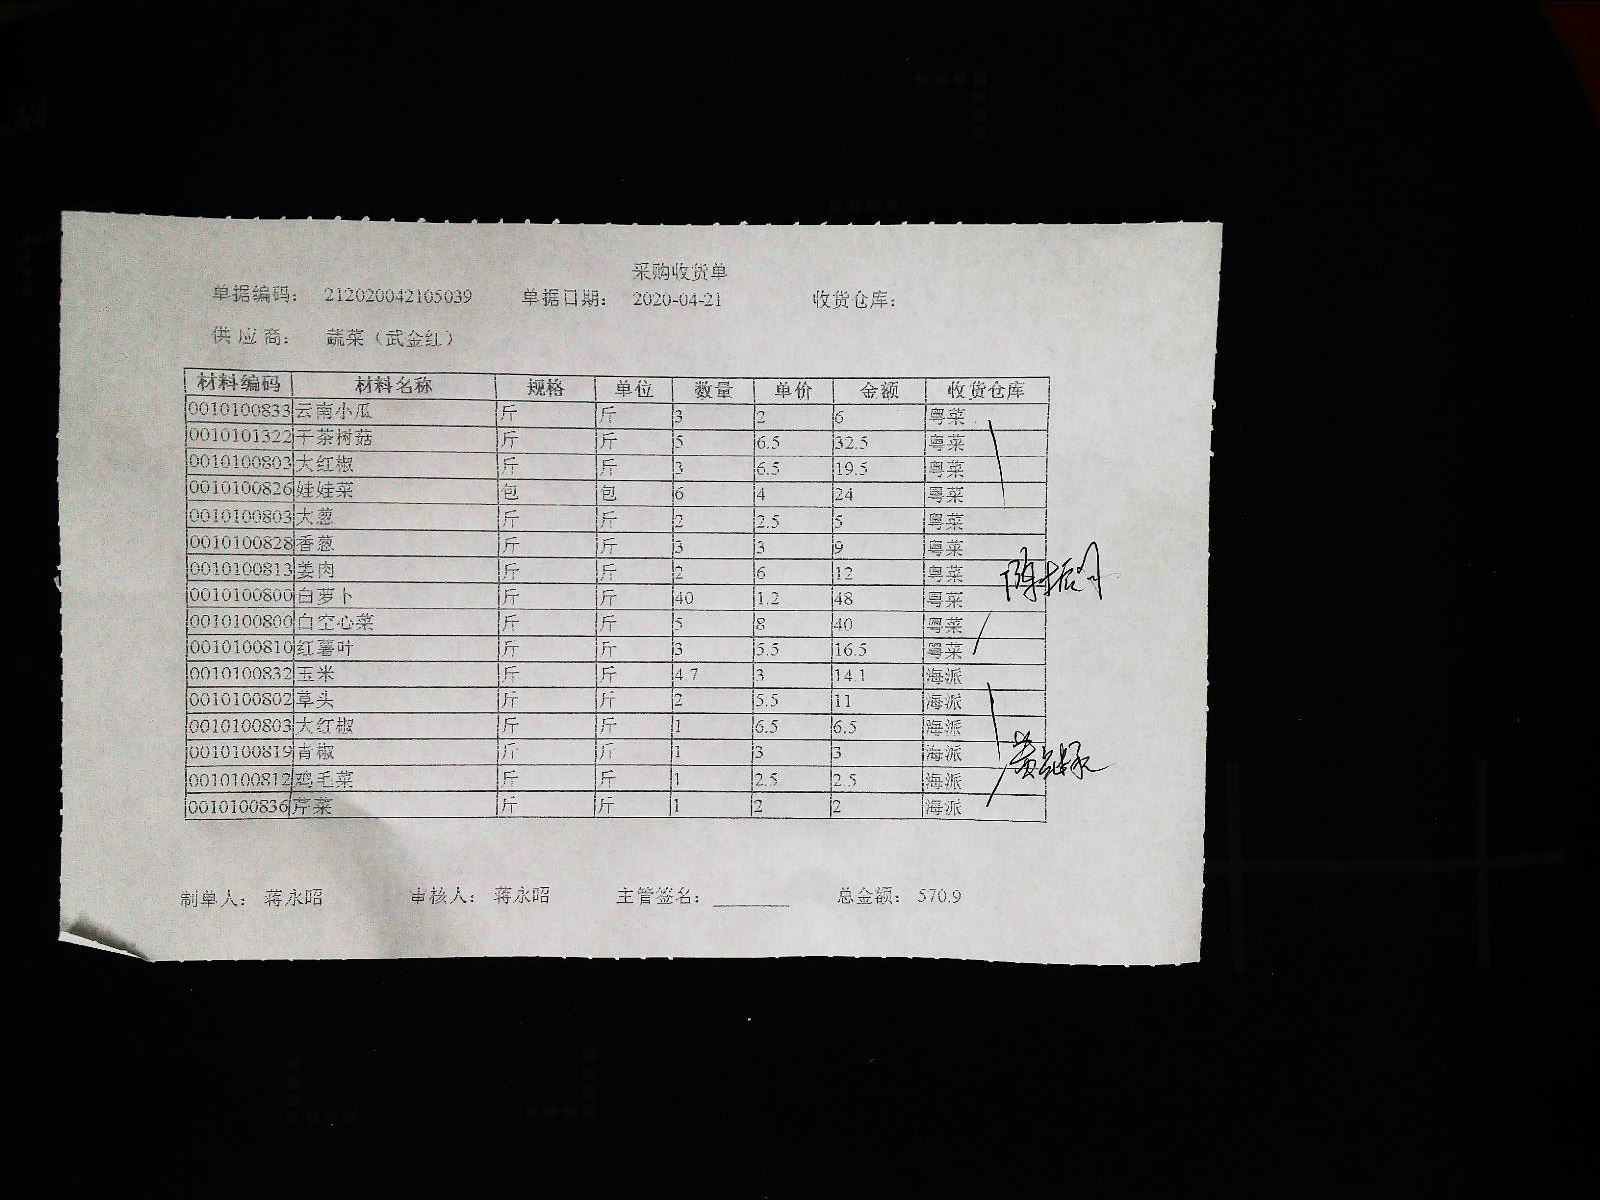 采购收货单
单据编码： 212020042105039 单据日期： 2020-04-21 收货仓库：
供 应 商： 蔬菜（武金红）
材料编码 材料名称 规格 单位 数量 单价 金额 收货仓库
0010100833 云南小瓜 斤 斤 3 2 6 粤菜
0010101322 干茶树菇 斤 斤 5 6.5 32.5 粤菜
0010100803 大红椒 斤 斤 3 6.5 19.5 粤菜
0010100826 娃娃菜 包 包 6 4 24 粤菜
0010100803 大葱 斤 斤 2 2.5 5 粤菜
0010100828 香葱 斤 斤 3 3 9 粤菜
0010100813 姜肉 斤 斤 2 6 12 粤菜
0010100800 白萝卜 斤 斤 40 1.2 48 粤菜
0010100800 白空心菜 斤 斤 5 8 40 粤菜
0010100810 红薯叶 斤 斤 3 5.5 16.5 粤菜
0010100832 玉米 斤 斤 4.7 3 14.1 海派
0010100802 草头 斤 斤 2 5.5 11 海派
0010100803 大红椒 斤 斤 1 6.5 6.5 海派
0010100819 青椒 斤 斤 1 3 3 海派
0010100812 鸡毛菜 斤 斤 1 2.5 2.5 海派
0010100836 芹菜 斤 斤 1 2 2 海派
制单人： 蒋永昭 审核人： 蒋永昭 主管签名： 总金额： 570.9